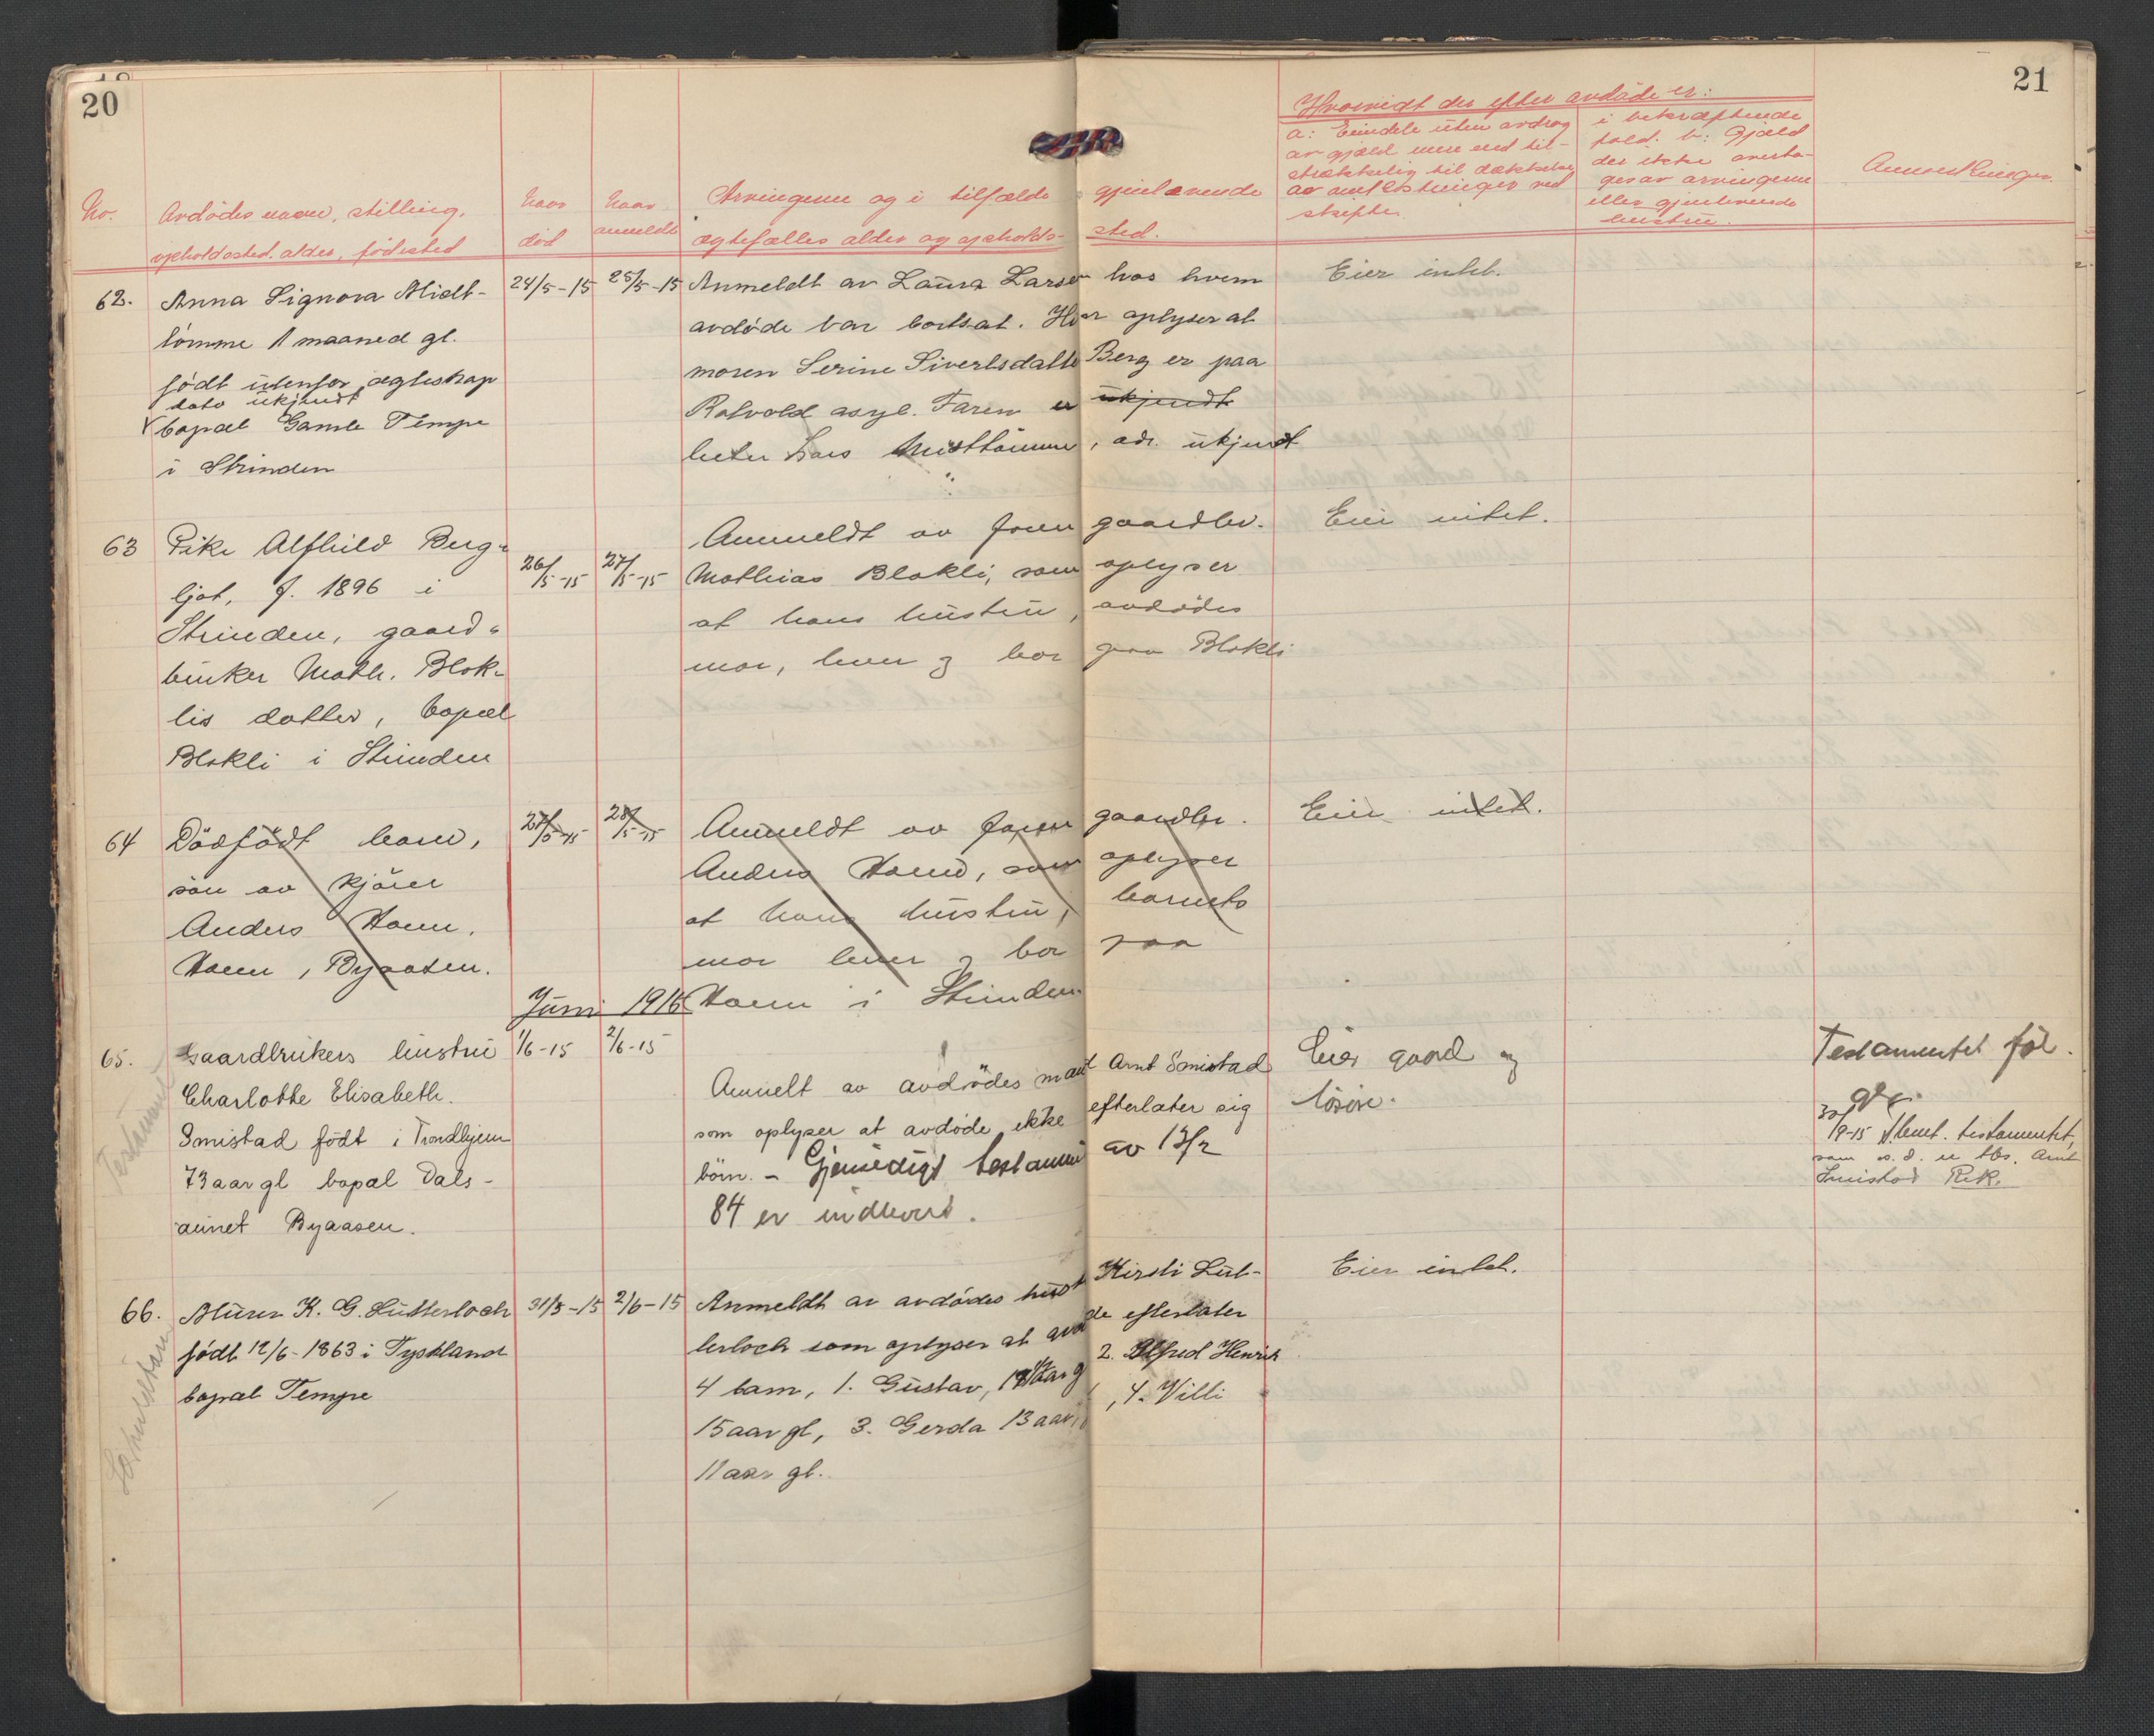 20
21
No.
Avdödes navn, stilling,
opholdssted, alder, födested
Naar
död
Naar
anmeldt
Arvingerne og i tilfælde gjenlevende
egtefælles alder og opholds- sted.
Hvorvidt der efter avdöde er:
a: Eiendele uten avdrag
av gjæld mere end til-
strækkelig til dækkelse
av omkostninger ved
skifte.
i bekræftende
fald. b: Gjæld
der ikke overta-
ges av arvingerne
eller gjenlevende
hustru.
Anmerkninger.
62.
Anna Signora Midt-
tömme 1 maaned gl.
födt utenfor egteskap
dato ukjendt
bopæl Gamle Tempe
i Strinden
24/5-15
25/5-15
Anmeldt av Laura Larsen hos hvem
avdöde var bortsat. Hun oplyser at
moren Serine Sivertsdatter Berg er paa
Rotvold asyl. Faren er ukjendt
heter Lars Midttömme, adr. ukjendt
Eier intet.
63
Pike Alfhild Berg-
ljot, f. 1896 i
Strinden, gaard-
bruker Math. Blek-
lis datter, bopæl
Blekli i Strinden
26/5-15
27/5-15
Anmeldt av faren gaardbr.
Mathias Blekli, som oplyser
at hans hustru, avdödes
mor, lever og bor paa Blekli
Eier intet.
64
Dödfödt barn,
sön av kjörer
Anders Havn,
Havn, Byaasen.
27/5-15
28/5-15
Anmeldt av faren gaardbr.
Anders Havn, som oplyser
at hans hustru, barnets
mor lever og bor paa
Havn i Strinden
Eier intet.
Juni 1915
65.
Gaardbrukers hustru
Charlotte Elisabeth
Smistad födt i Trondhjem
73 aar gl bopæl Dals-
aunet Byaasen.
Testament
1/6-15
2/6-15
Anmelt av avdödes mand Arnt Smistad
som oplyser at avdöde ikke efterlater sig
börn. - Gjensidigt testament av 13/2
84 er indlevert.
Eier gaard og
lösöre.
Testamentet föl.
30/9-15 Ment. testamentet,
som s. d. er tbs. Arnt
Smistad
66.
Murer K. G. Lutterloch
födt 12/6-1863 i Tyskland
bopæl Tempe
31/5-15
2/6-15
Anmeldt av avdödes hustru Kirsti Lut-
terloch som oplyser at avdöde efterlater
4 barn, 1. Gustav, aar gl 2. Alfred Henrik
15 aar gl, 3. Gerda 13 aar gl, 4. Villi
11 aar gl.
Eier intet.